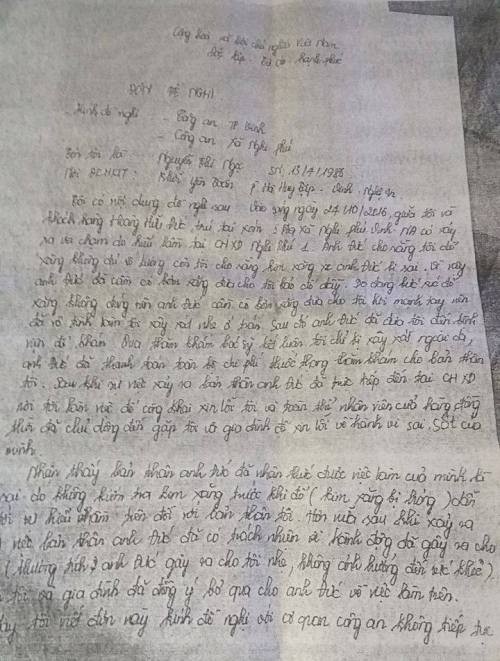 Cộng hoà xã hội chủ nghĩa Việt Nam
Độc lập - Tự do - hạnh phúc
ĐƠN ĐỀ NGHỊ
- Kính đề nghị - Công an TP Vinh
- Công an xã Nghi phú
Tên tôi là Nguyễn Thị Ngọc SN, 13/4/1988
Nơi ĐCHKTT: Khối Yên Toàn P. Hà Huy Tập - Vinh - Nghệ An
Tôi có nội dung đề nghị sau Vào sáng ngày 24/10/2016, giữa tôi và
khách hàng Hoàng Hữu Đức trú tại xóm 3 xã Nghi phú Vinh NA có xảy
ra va chạm do hiểu lầm tại CHXD Nghi Phú 1. Anh Đức cho rằng tôi đổ
xăng không đủ về lượng còn tôi cho rằng kim xăng xe anh Đức bị sai. Vì vậy
anh Đức đã cầm cò bơm xăng đưa cho tôi bảo đổ đây. Do đang lúc sự đổ
xăng không đúng nên anh Đức cầm cò bơm xăng đưa cho tôi hơi mạnh tay nên
đã vô tình làm tôi xây xát nhẹ ở trán. Sau đó anh Đức đã đưa tôi đến bệnh
viện để khám. Qua thăm khám bác sỹ kết luận tôi chỉ bị xây xát ngoài da,
anh Đức đã thanh toán toàn bộ chi phí thuốc thang thăm khám cho bản thân
tôi. Sau khi sự việc xảy ra bản thân anh Đức đã trực tiếp đến tại CHXD
nơi tôi làm việc để công khai xin lỗi tôi và toàn thể nhân viên cửa hàng đồng
thời đã chủ động đến gặp tôi và gia đình để xin lỗi về hành vi sai sót của
mình.
Nhận thấy bản thân anh Đức đã nhận thức được việc làm của mình là
sai do không kiểm tra kim xăng trước khi đổ (kim xăng bị hỏng) dẫn
tới sự hiểu nhầm trên đối với bản thân tôi. Hơn nữa sau khi xảy ra
việc bản thân anh Đức đã có trách nhiệm về hành động đã gây ra cho
(thương tích anh Đức gây ra cho tôi nhẹ, không ảnh hưởng đến sức khoẻ)
tôi và gia đình đã đồng ý bỏ qua cho anh Đức về việc làm trên.
Nay tôi viết đơn này kính đề nghị với cơ quan công an không tiếp tục